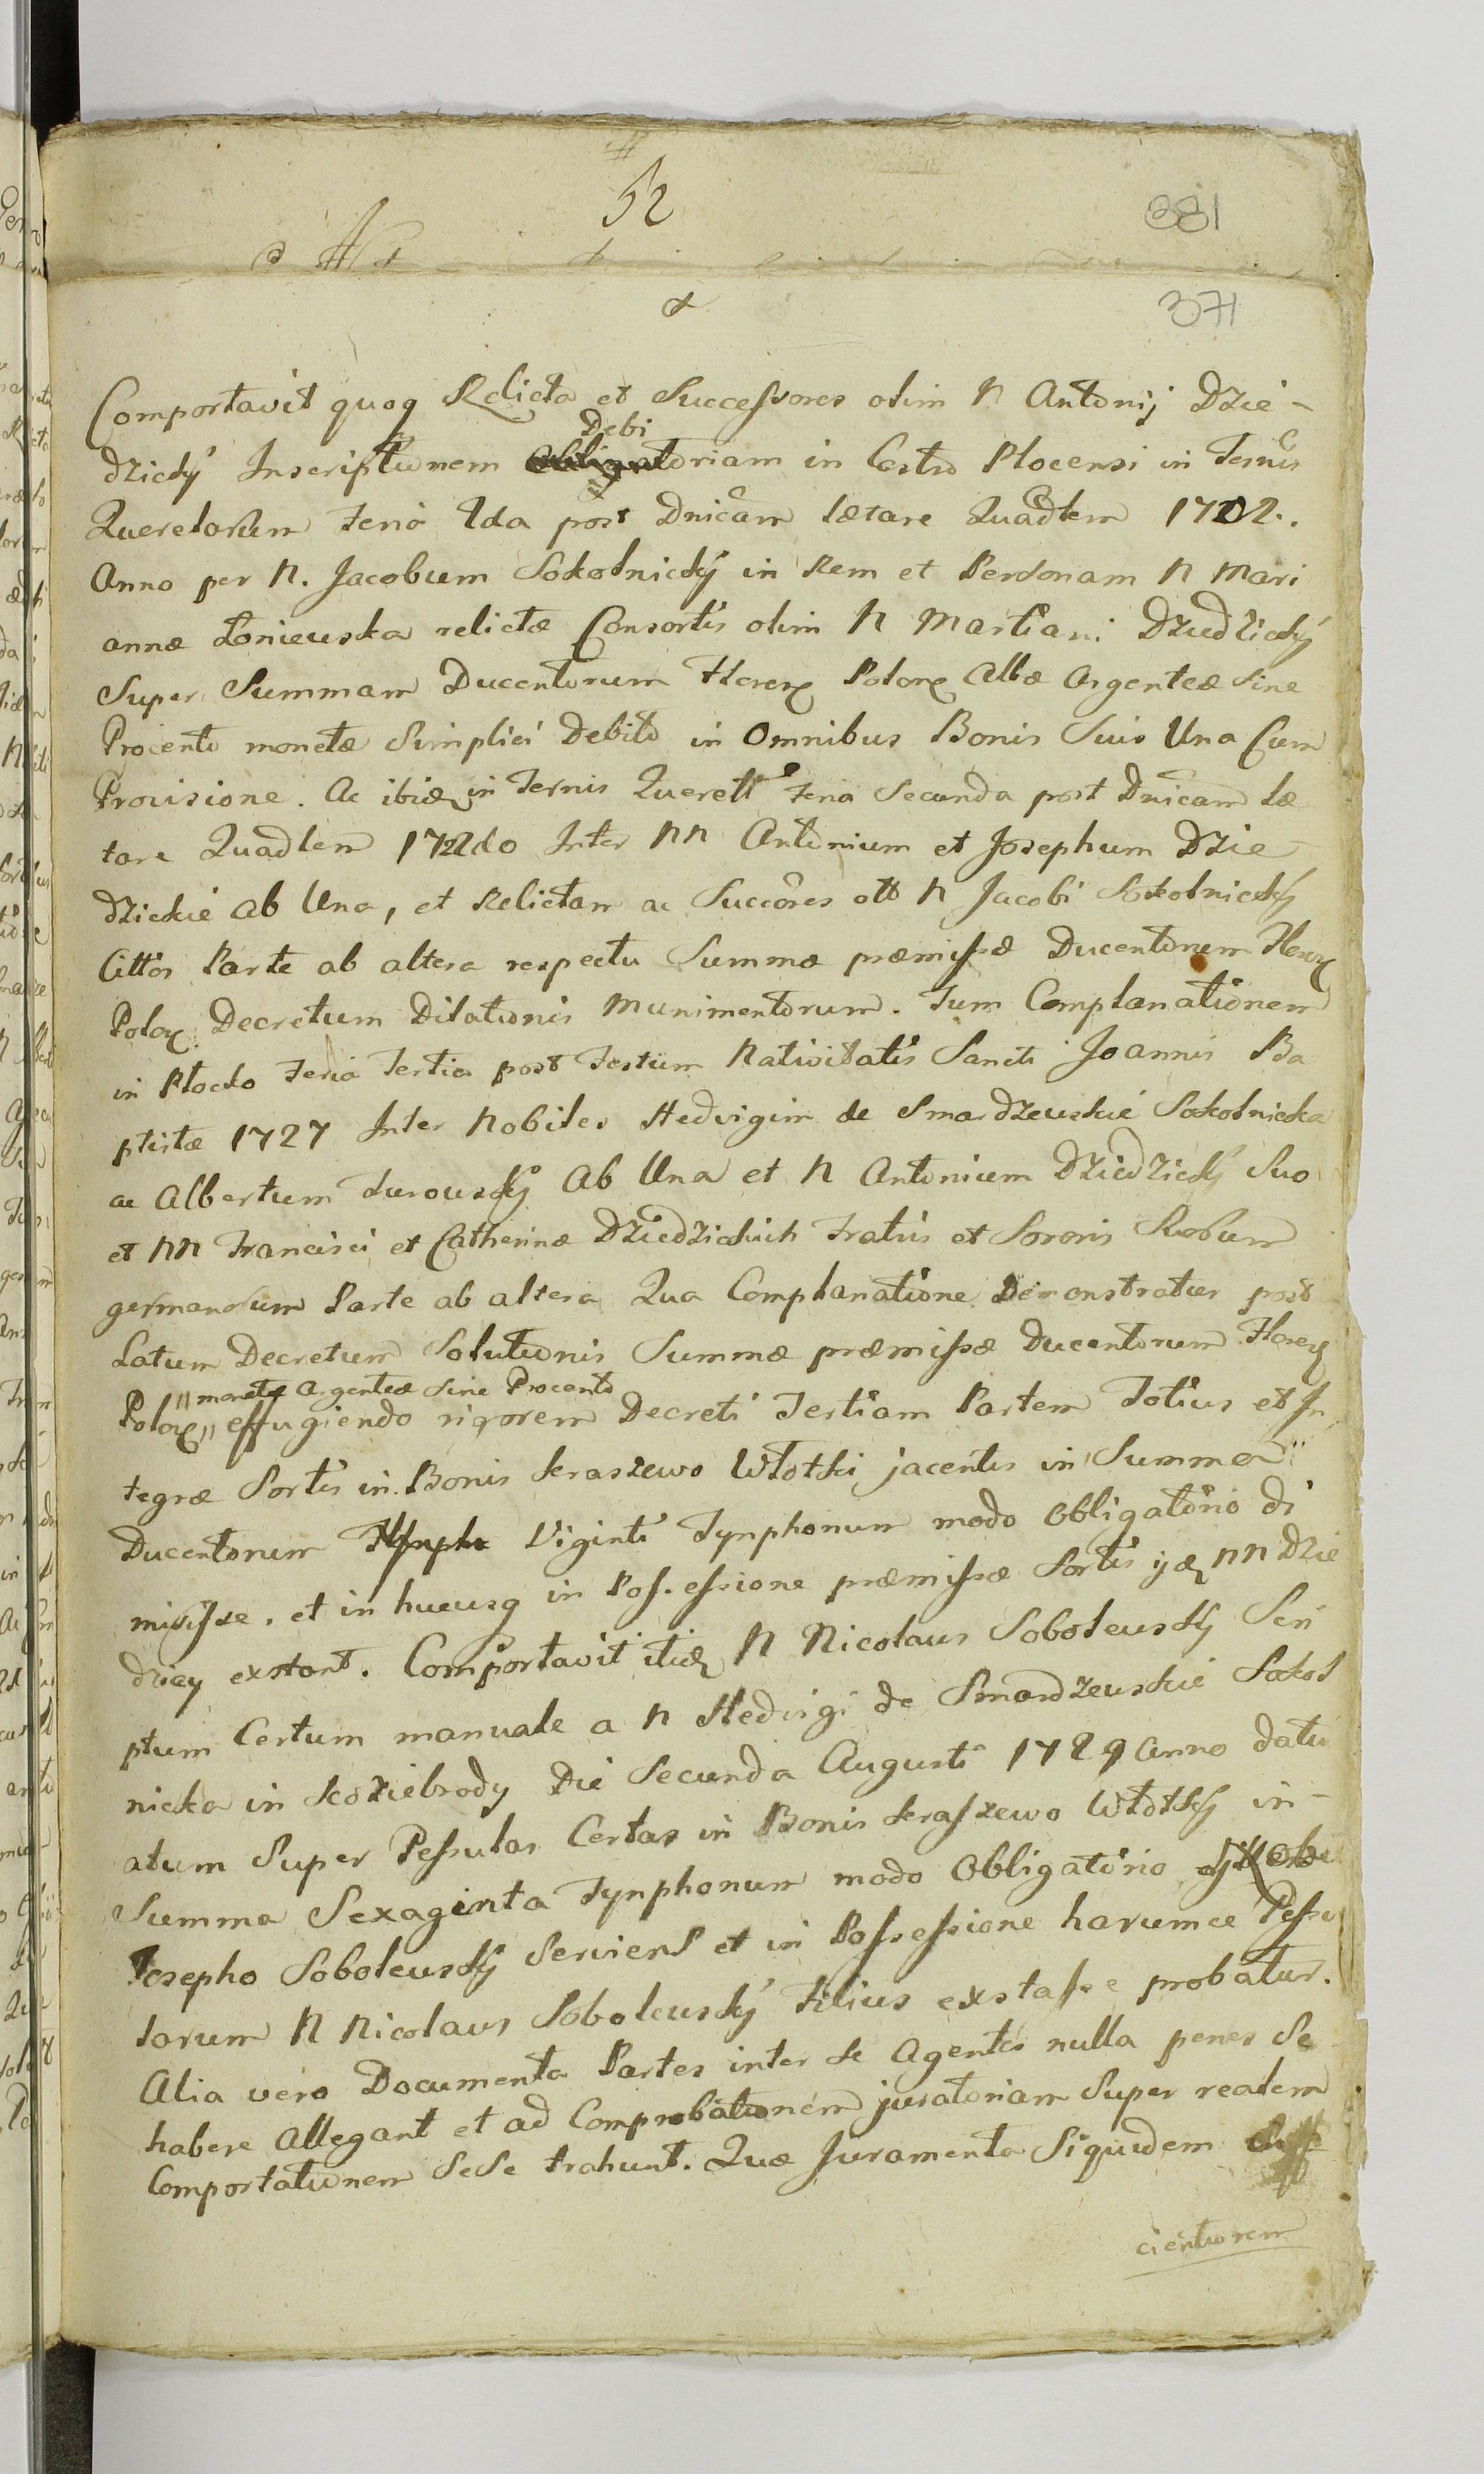 52
381
371
Comportavit quoq Relicta et Successores olim N Antonij Dzie-
Debi
dzicky Inscriptionem Obligatoriam in Castro Plocensi in Termis
Querelarum Feria 2da post Dnicam Lætare Quadlem 1702.
Anno per N. Jacobum Sokolnicky in Rem et Personam N Mari
annæ Łoniewska relictæ Consortis olim N Martiani Dziedzicky
Super Summam Ducentorum Floren Polon Albæ Argenteæ Sine
Procento monetæ Simplici Debito in Omnibus Bonis Suis Una Cum
Provisione. Ac ibid in Termis Querell Feria Secunda post Dnicam Læ
tare Quadlem 1722do Inter NN Antonium et Josephum Dzie
dzickie ab Una, et Relictam ac Succores olb N Jacobi Sokolnicky
Cittos Parte ab altera respectu Summæ præmissæ Ducentorum Floren
Polon: Decretum Dilationis Munimentorum. Tum Complanationem
in Płocko Feria Tertia post Festum Nativitatis Sancti Joannis Ba
ptistæ 1727 Inter Nobiles Hedvigim de Smardzewskie Sokolnicka
ac Albertum Turowsky Ab Una et N Antonium Dziedzicky Suo
et NN Francisci et Catherinæ Dziedzickich Fratris et Sororis Suorum
germanorum Parte ab altera Qua Complanatione Demonstratur post
Latum Decretum Solutionis Summæ præmissæ Ducentorum Floren
monetæ Argenteæ Sine Procento
Polon effugiendo rigorem Decreti Tertiam Partem Totius et In
tegræ Sortis in Bonis Kraszewo Włotki jacentis in Summa
Ducentorum Viginti Tynphonum modo Obligatorio di
misisse. et in hucusq in Possessione præmissæ Sortis ijd NN Dzie
dzicy exstant. Comportavit itid N Nicolaus Sobolewsky Scri
ptum Certum manuale a N Hedvigi de Smardzewskie Sokol
nicka in Koziebrody Die Secunda Augusti 1729 Anno datu
atum Super Pessulas Certas in Bonis Kraszewo Włotky in-
Summa Sexaginta Tynphonum modo Obligatorio
Josepho Sobolewsky Serviens et in Possessione harumce Pessu
larum N Nicolaus Sobolewsky Filius exstasse probatur.
Alia vero Documenta Partes inter se Agentes nulla penes Se
habere Allegant et ad Comprobationem juratoriam Super realem
Comportationem Sese trahunt. Quæ Juramenta Siquidem
cientiorem